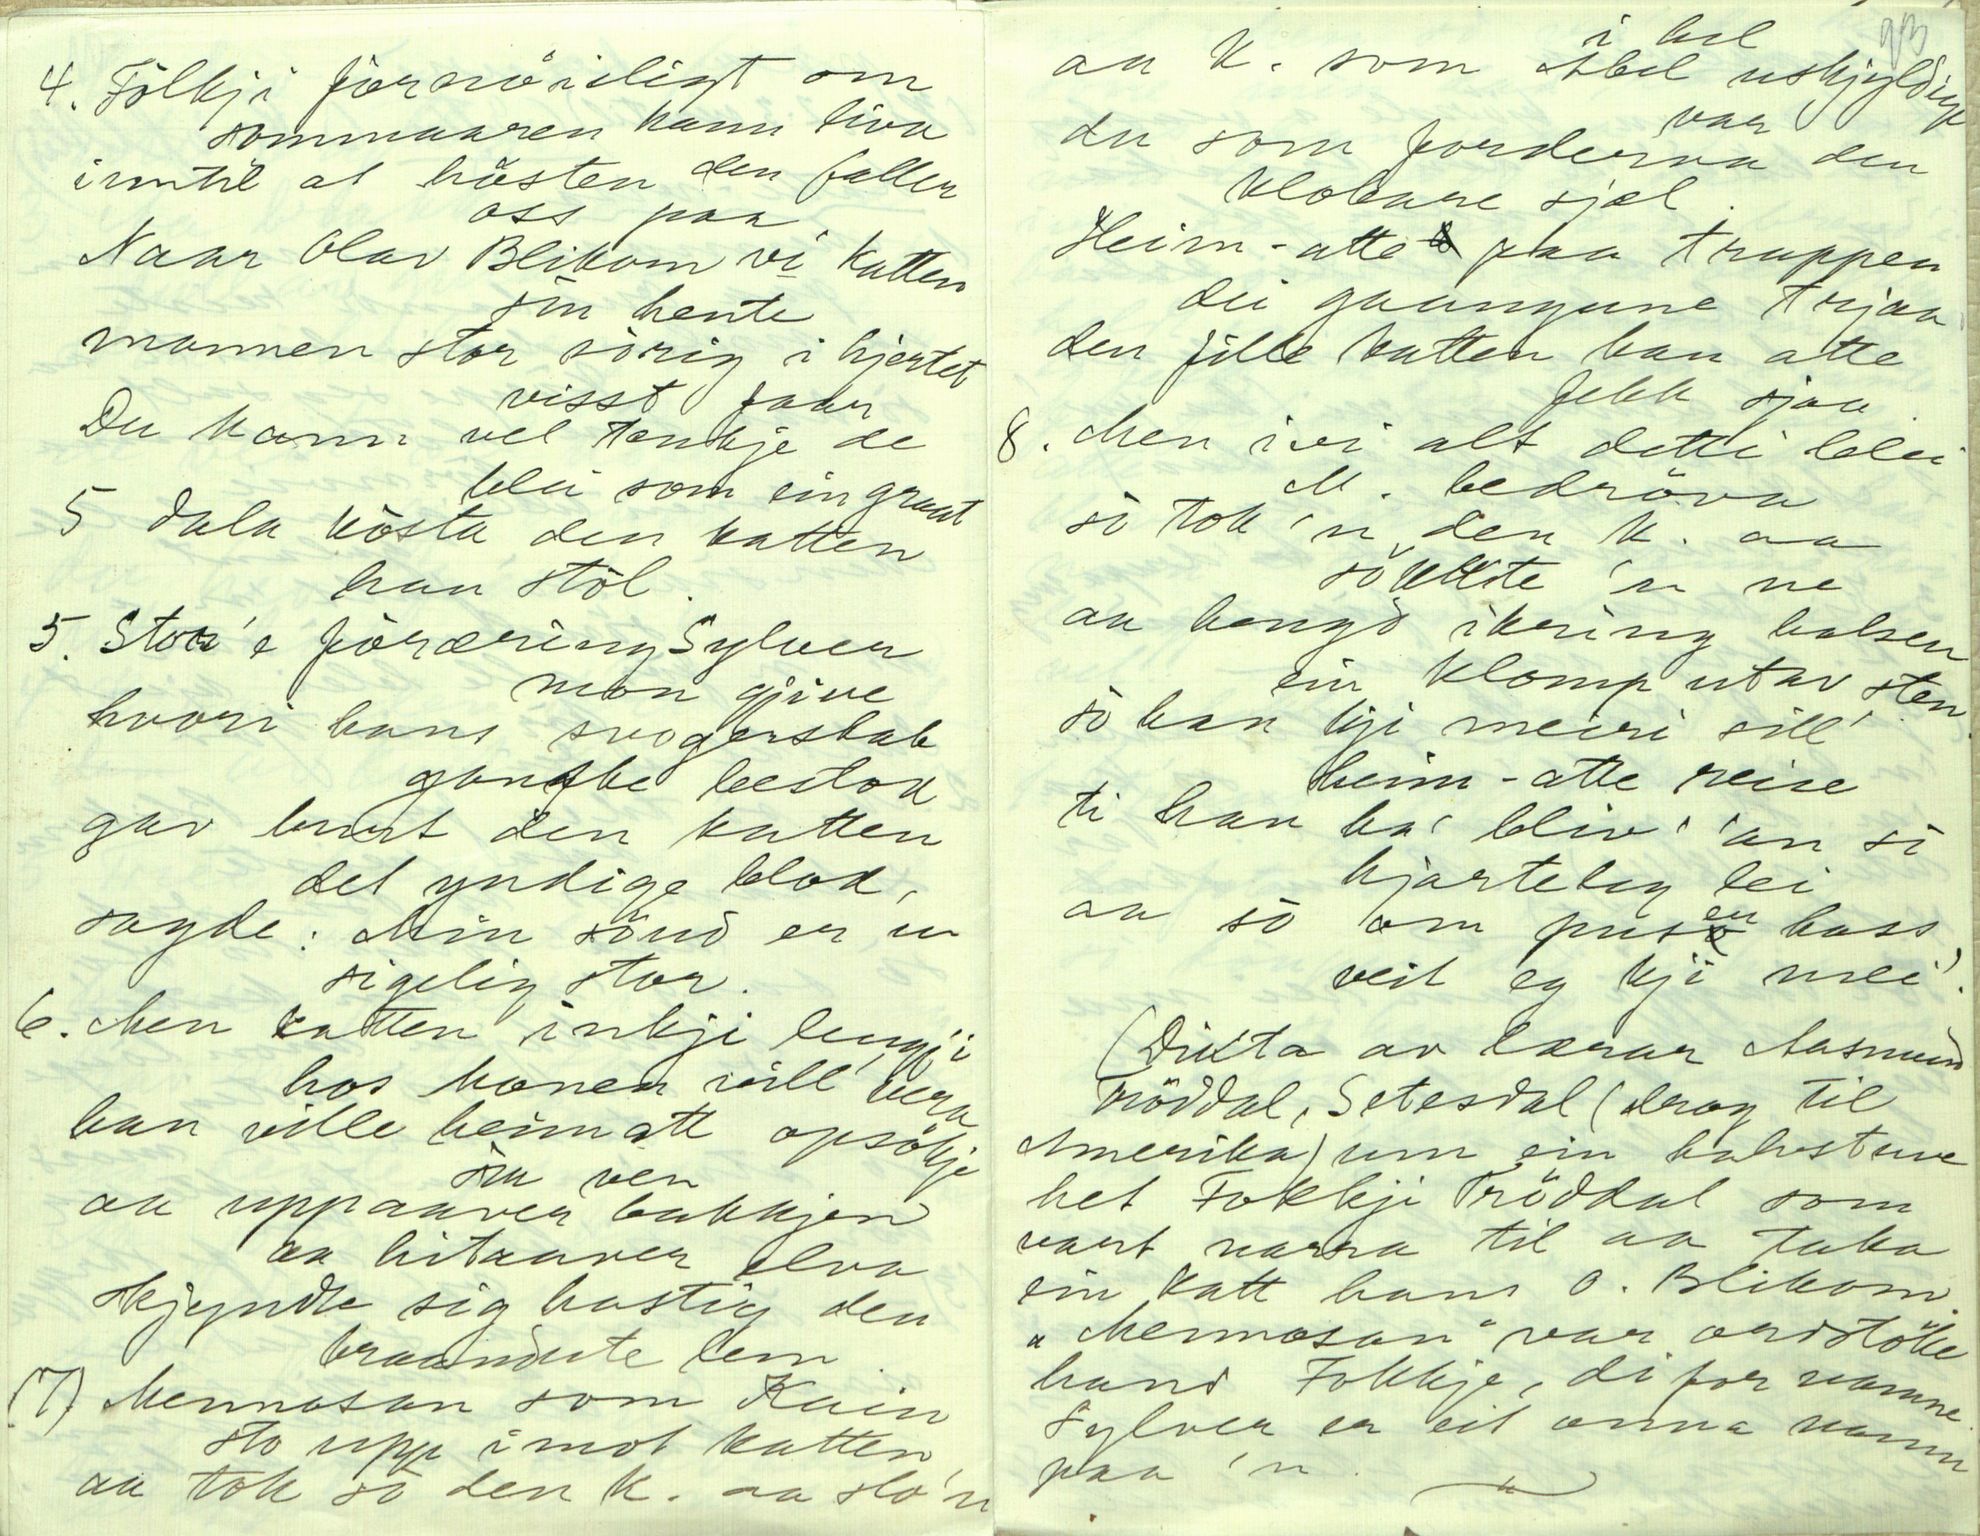 4. Fölkji fornöieligt om
sommaaren kann liva
inntil at hösten den faller
oss paa
Naar Olav Blikom vi katten
sin hente
mannen stor sörig i hjertet
visst faar
Du kann vel tenkje de
blei som ein graat
5 dala kosta den katten
han stöl.
5. Stor'e foræring Sylver
mon gjive
hvori hans svogerskab
ganske bestod
gav burt den katten
det yndige blod,
sagde: Min sönd er u
sigelig stor.
6. Men katten inkji lengji
hos konen vill' vera
han ville heimatt opsökje
sin ven
aa uppaaver bakkjen
aa hitaaver elva
skjyndte sig hastig den
braandute lem
(7) Mennosan som Kain
sto upp imot katten,
aa tok so den K. aa slo 'n
i hel
aa K. som Abel uskjyldige
var
du som forderva den
klokare sjæl.
Heim-atte paa trappen
dei gaangune trjaa
den fille katten han atte
fekk sjaa.
8. Men ivi alt detti blei
M. bedröva
so tok 'n den K. aa
sökkte 'n ne
aa hengd ikring halsen
ein klomp utav sten
so han kji meiri sill'
heim-atte reise
ti han ha' bliv' 'an so
hjarteleg lei
aa so om pusen hass
veit eg kji mei'.
(Dikta av lærar Aasmund
Tröddal, Setesdal (drog til
Amerika) um ein
het Fokkji Tröddal som
vart narra til aa taka
ein katt hans O. Blikom.
"Mennosan" var ordstöke
hans Fokkje, di for namne.
Sylver er eit anna namn
paa 'n.